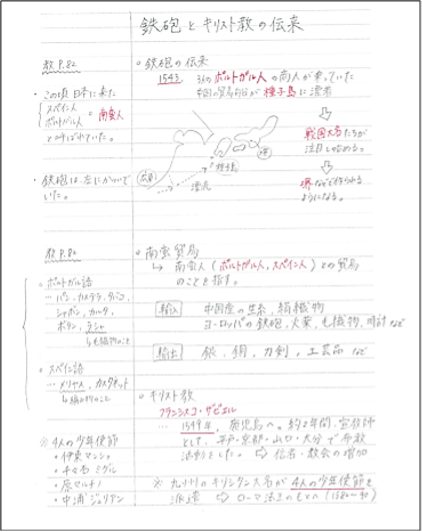 鉄砲とキリスト教の伝来
教P.82
・この頃日本に来た
スペイン人
ポルトガル人 = 南蛮人
と呼ばれていた。
・鉄砲は、左にかついで
いた。
○鉄砲の伝来
1543 3人のポルトガル人の商人が乗っていた
中国の貿易船が種子島に漂着
戦国大名たちが
注目し始める。
堺などで作られる
ようになる。
種子島
堺
漂流
教P.82
○ポルトガル語
… パン、カステラ、タバコ、
シャボン、カルタ、
ボタン、ラシャ
↳毛織物のこと
○スペイン語
… メリヤス、カスタネット
↳編み物のこと
※4人の少年使節
・伊東マンショ
・千々石ミゲル
・原マルチノ
・中浦ジュリアン
○南蛮貿易
↳ 南蛮人(ポルトガル人、スペイン人)との貿易
のことを指す。
輸入 中国産の生糸、絹織物
ヨーロッパの鉄砲、火薬、毛織物、時計など
輸出 銀、銅、刀剣、工芸品など
○キリスト教
フランシスコ・ザビエル
… 1549年、鹿児島へ。約2年間、宣教師
として、平戸・京都・山口・大分で布教
活動をした。⇨ 信者・教会の増加
※ 九州のキリシタン大名が4人の少年使節を
派遣 ⇨ ローマ法王のもとへ(1582〜90)